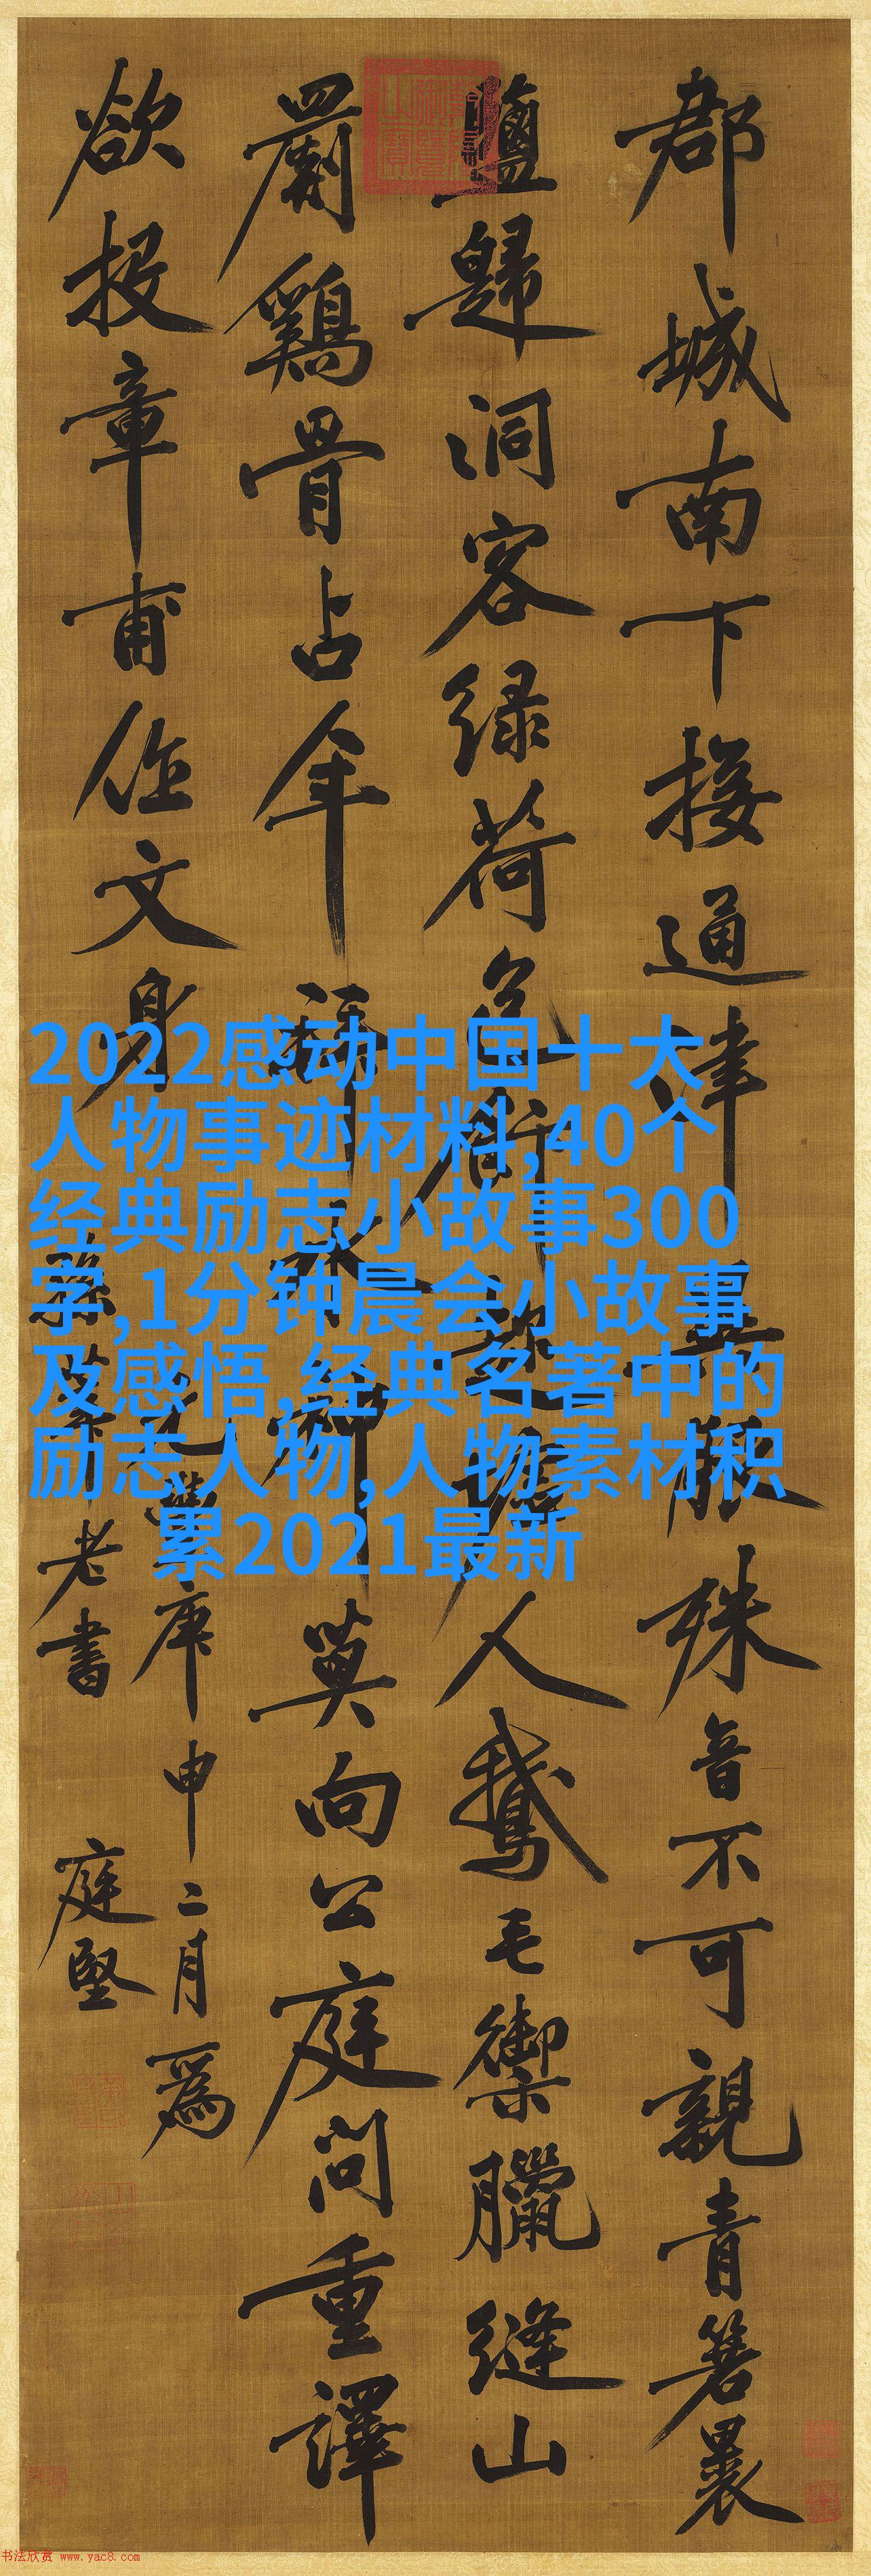 郡城南下接通津異服殊音不可親青箬裹
鹽歸洞客绿荷包人鵝毛禦臘縫山
罽鷄骨占年莫向公庭問重譯
欲投章甫作文身
庚申二月爲
老書
庭堅
2022感动中国十大
人物事迹材料,40个
经典励志小故事300
字,1分钟晨会小故事
及感悟,经典名著中的
励志人物,人物素材积
累2021最新
书法欣赏 www.yac8.com